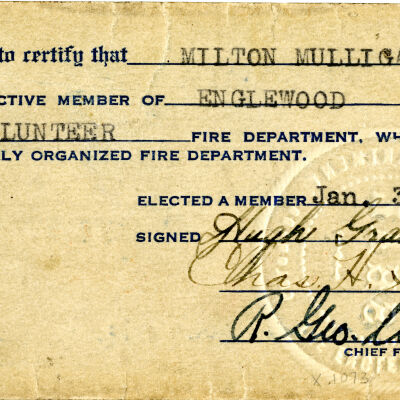 to certify that MILTON MULLIGA
CTIVE MEMBER OF ENGLEWOOD
LUNTEER FIRE DEPARTMENT, WH
LY ORGANIZED FIRE DEPARTMENT.
ELECTED A MEMBER Jan. 3
SIGNED Hugh Gra
Chas. H.
R. Geo.
CHIEF F
X.1073